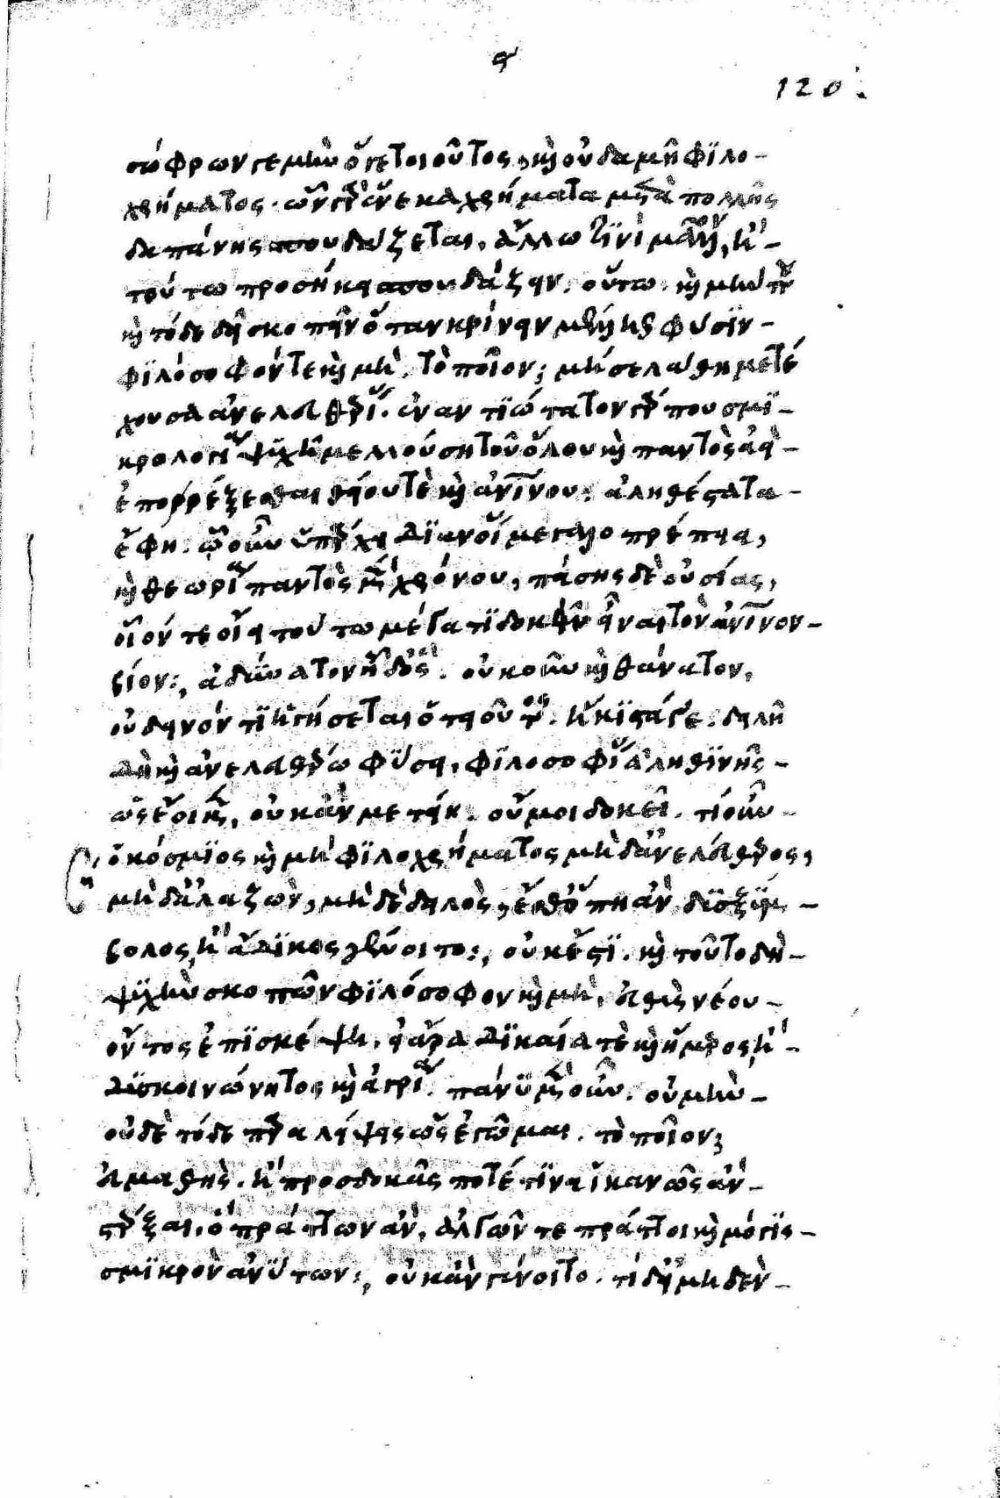 ϛ
120
σώφρων γε μὴν ὅ γε τοιοῦτος, καὶ οὐδαμῇ φιλο-
χρήματος. ὧν γὰρ ἕνεκα χρήματα μετὰ πολλῆς
δαπάνης σπουδάζεται, ἄλλω τινὶ μᾶλλον, ἢ
τούτω προσήκει σπουδάζειν. οὕτω. καὶ μήν που
καὶ τόδε δεῖ σκοπεῖν ὅταν κρίνειν μέλλῃς φύσιν
φιλόσοφόν τε καὶ μή. τὸ ποῖον; μή σε λάθῃ μετέ
χουσα ἀνελευθερίας. ἐναντιώτατον γάρ που σμι-
κρολογία ψυχῇ μελλούσῃ τοῦ ὅλου καὶ παντὸς ἀεὶ
ἐπορέξεσθαι θείου τὲ καὶ ἀνθρωπίνου. ἀληθέστατα
ἔφη. ᾧ οὖν ὑπάρχει διανοία μεγαλοπρέπεια,
καὶ θεωρία παντὸς μὲν χρόνου, πάσης δὲ οὐσίας,
οἷόν τε οἴει τούτω μέγα τι δοκεῖν εἶναι τὸν ἀνθρώπινον
βίον; ἀδύνατον ἦ δ' ὅς. οὐκοῦν καὶ θάνατον,
οὐ δεινόν τι ἡγήσεται ὁ τοιοῦτος. ἥκιστά γε. δειλῇ
δὴ καὶ ἀνελευθέρω φύσει, φιλοσοφίας ἀληθινῆς
ὡς ἔοικεν, οὐκ ἂν μετείη. οὔ μοι δοκεῖ. τί οὖν
ὁ κόσμιος καὶ μὴ φιλοχρήματος μὴδ' ἀνελεύθερος,
μὴδ' ἀλαζὼν, μὴδὲ δειλὸς, ἔσθ' ὅπη ἂν δυσξύμ
βολος, ἢ ἄδικος γένοιτο; οὐκ ἔστι. καὶ τοῦτο δὴ
ψυχὴν σκοπῶν φιλόσοφον καὶ μὴ, εὐθὺς νέου
ὄντος ἐπισκέψη, εἰ ἄρα δικαία τὲ καὶ ἥμερος, ἢ
δυσκοινώνητος καὶ ἀγρία. πάνυ μὲν οὖν. οὐ μὴν
οὐδὲ τόδε παραλείψεις ὡς ἐγῶμαι. τὸ ποῖον;
εὐμαθὴς. ἢ προσδοκᾶς ποτέ τινα ἱκανῶς ἂν
στέρξαι, ὃ πράττων ἂν, ἀλγῶν τε πράττοι καὶ μόγις
σμικρὸν ἀνύτων; οὐκ ἂν γένοιτο. τί δ' εἰ μηδὲν